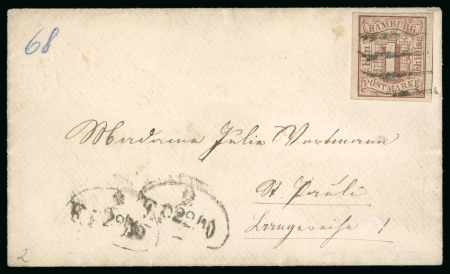 68
HAMBURG
POSTMARKE
Madame Julie Wortmann
St. Pauli
Langereihe 1
2